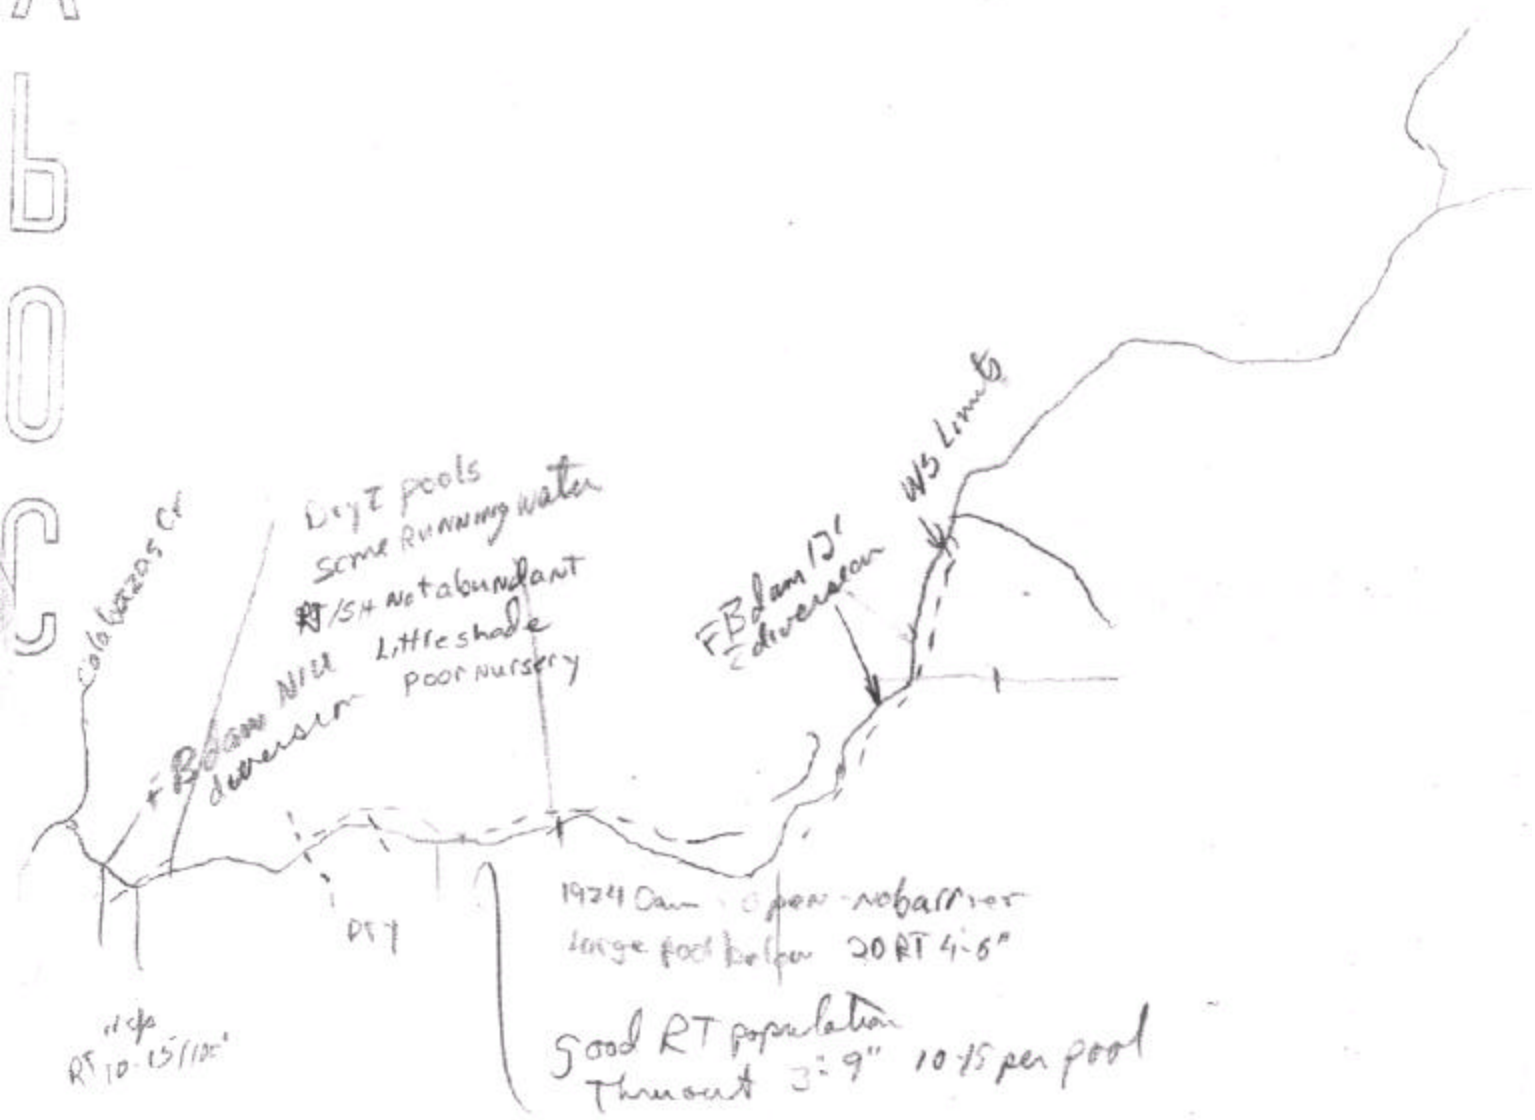 Calabazas Cr
Dry I pools
some Running water
RT/SH Not abundant
Little shade
Poor Nursery
FB dam
diversion
FB dam 12'
diversion
WS Limits
Dry
RT 10-15/100'
1924 Dam Open - no barrier
Large pool below 20 RT 4-6"
Good RT population
Thruout 3"-9" 10-15 per pool